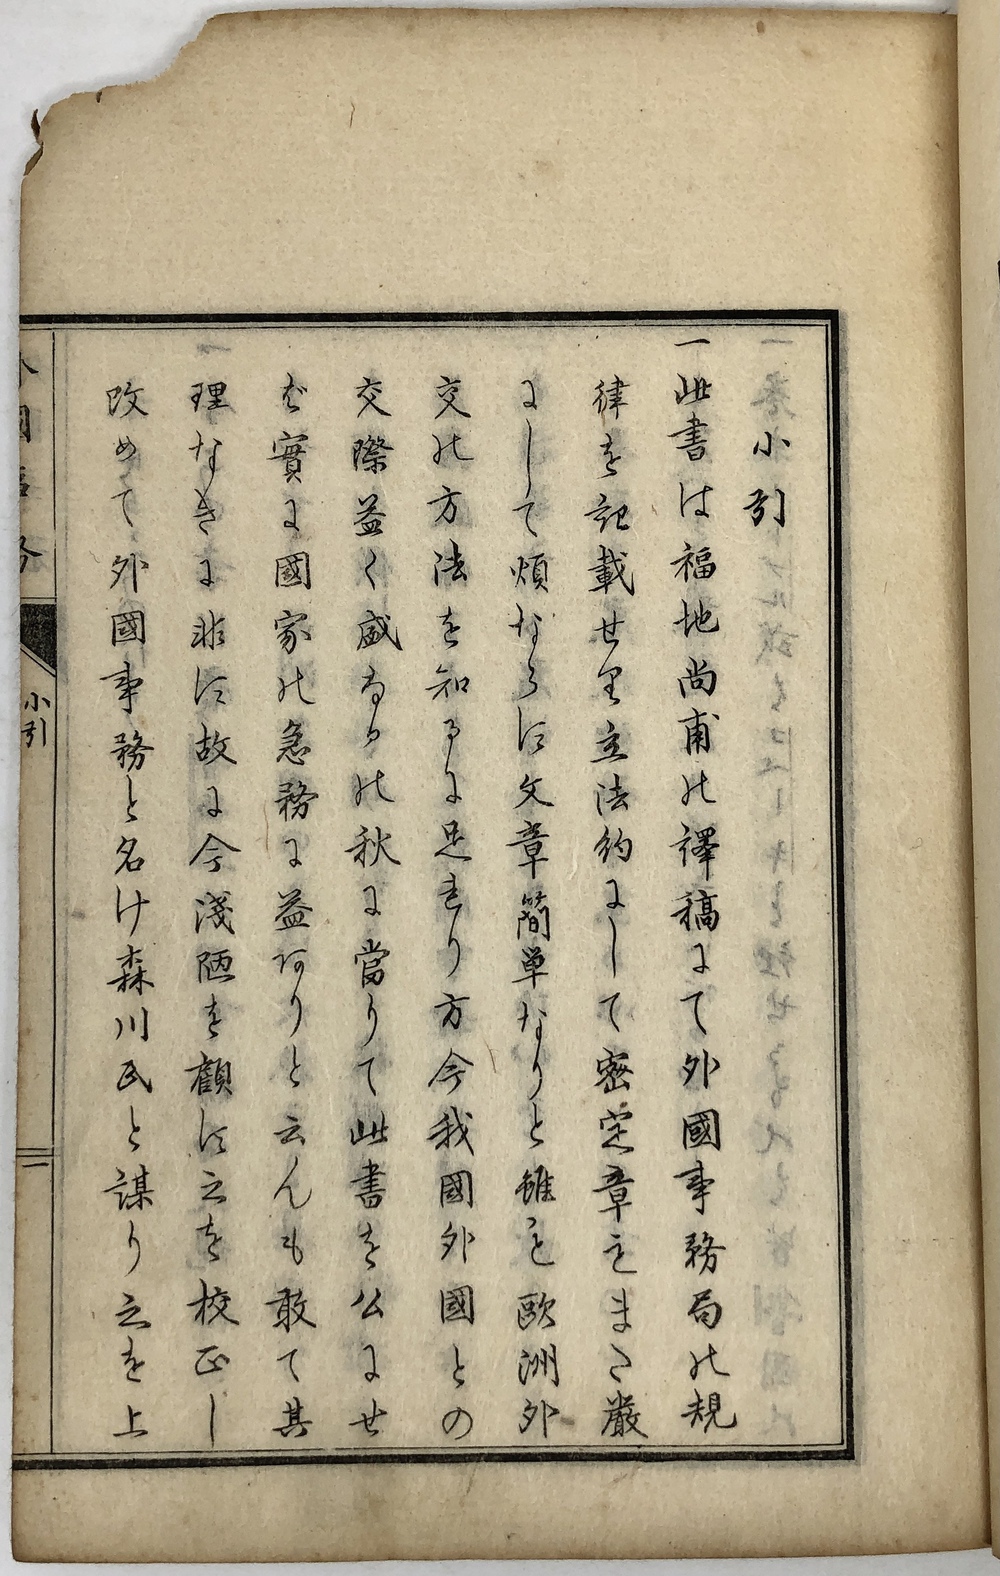 小引
一此書は福地尚甫の譯稿にて外國事務局の規
律を記載せり立法約にして密定章もまた嚴
にして煩ならに文章簡単なりと雖も歐洲外
交の方法を知るに足れり方今我國外國との
交際益く盛なるの秋に當りて此書を公にせ
ば實に國家の急務に益ありと云んも敢て其
理なきに非に故に今淺陋を顧に之を校正し
改めて外國事務と名け森川氏と謀り之を上
外國事務
小引
一